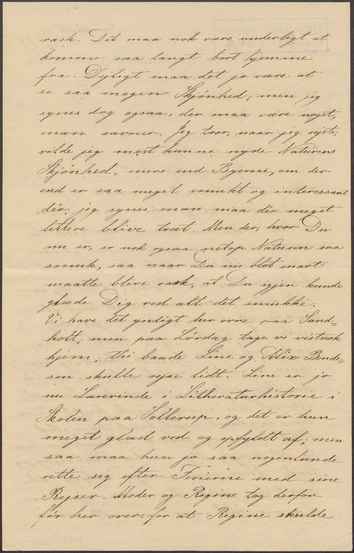 rask. Det maa nok være underligt at
komme saa langt bort hjemme
fra. Dejligt maa det jo være at
se saa megen Skjønhed, men jeg
synes dog ogsaa, der maa være noget,
man savner. Jeg tror, naar jeg rejste,
vilde jeg mest kunne nyde Naturens
Skjønhed, mere end Byerne, om der
end er saa meget smukt og interessant
der, jeg synes man maa der meget
lettere blive træt. Men der, hvor Du
nu er, er nok ogsaa netop Naturen saa
smuk, saa naar Du nu blot snart
maatte blive rask, at Du igjen kunde
glæde Dig ved alt det smukke.
Vi have det yndigt her ovre paa Sand-
holt, men paa Lørdag tage vi vistnok
hjem, thi baade Line og Alix Bend-
sen skulle rejse lidt. Line er jo
nu Lærerinde i Litteraturhistorie i
Skolen paa Sollerup, og det er hun
meget glad ved og opfyldt af; men
saa maa hun jo saa nogenlunde
rette sig efter Ferierne med sine
Rejser. Moder og Regine tog derfor
før her over for at Regine skulde